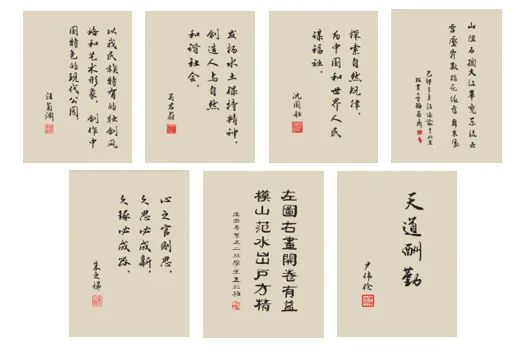 以我民族特有的独创风
格和艺术形象，创作中
国特色的现代公园。
汪菊渊
发扬水土保持精神，
创造人与自然
和谐社会。
关君蔚
探索自然规律，
为中国和世界人民
谋福祉。
沈国舫
山阻石拦大江毕竟东流去
雪压霜欺梅花依旧向东风
心之官则思，
久思必成新，
久琢必成路。
朱之悌
左圖右畫開卷有益
模山范水出戶方精
天道酬勤
尹伟伦